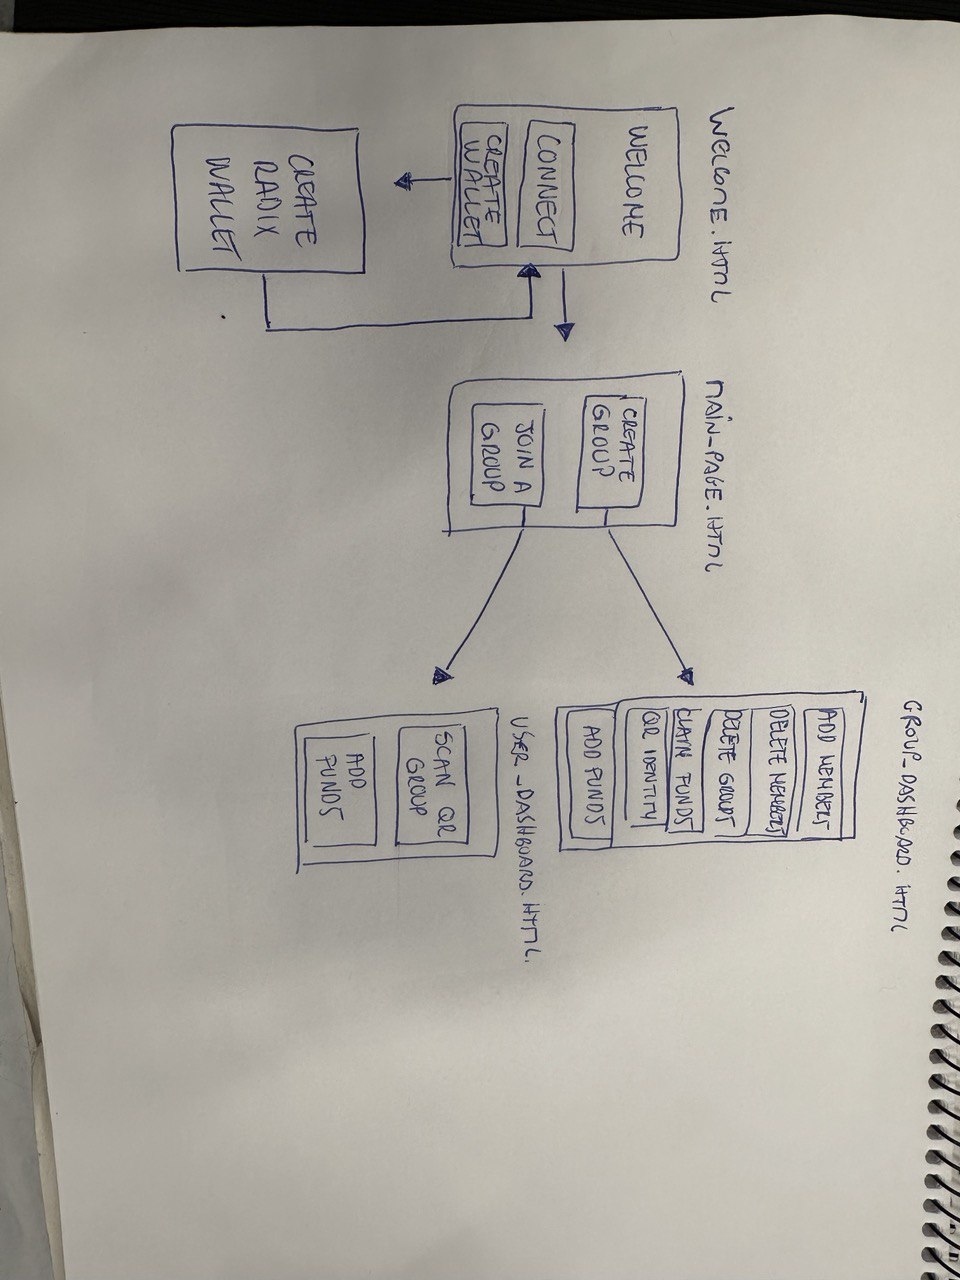 WELCOME.HTML
WELCOME
CONNECT
CREATE
WALLET
CREATE
RADIX
WALLET
MAIN-PAGE.HTML
CREATE
GROUP
JOIN A
GROUP
GROUP_DASHBOARD.HTML
ADD MEMBERS
DELETE MEMBERS
DELETE GROUPS
CLAIM FUNDS
QR IDENTITY
ADD FUNDS
USER_DASHBOARD.HTML.
SCAN QR
GROUP
ADD
FUNDS